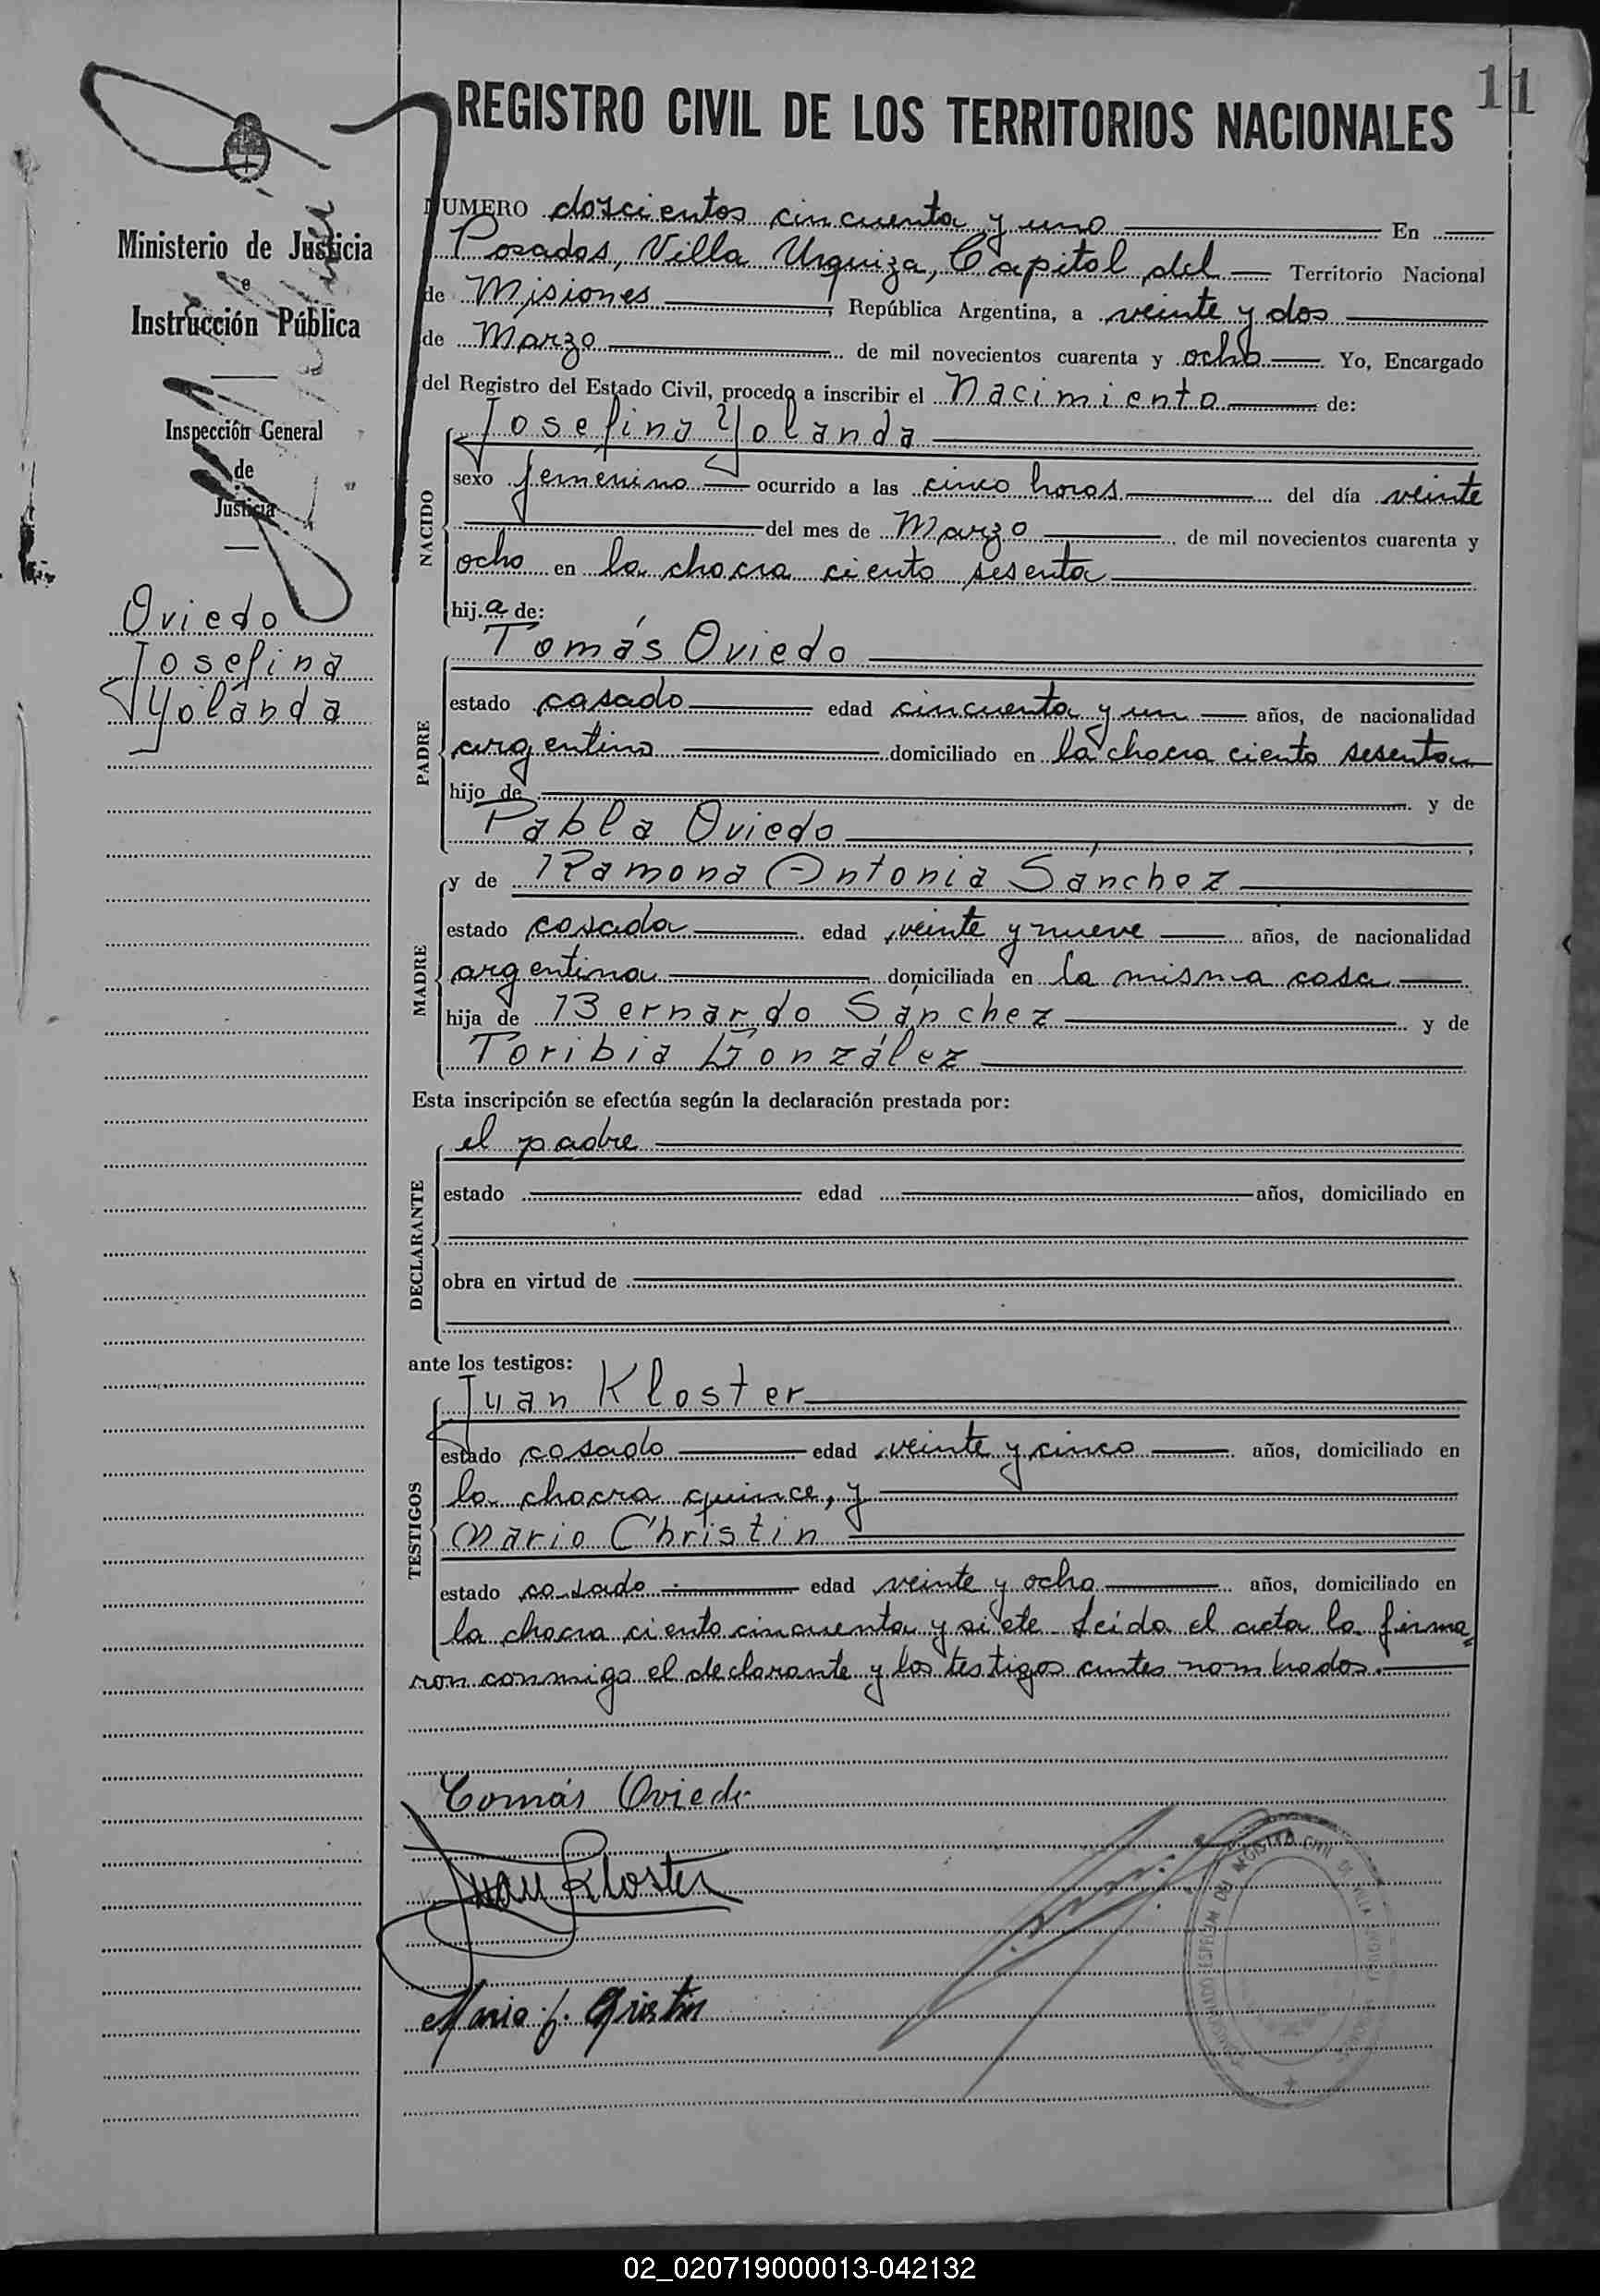 11
REGISTRO CIVIL DE LOS TERRITORIOS NACIONALES
Ministerio de Justicia
e
Instrucción Pública
Inspección General
de
Justicia
Oviedo
Josefina
Yolanda
NUMERO doscientos cincuenta y uno En
Posadas, Villa Urquiza, Capital del Territorio Nacional
de Misiones, República Argentina, a veinte y dos
de Marzo de mil novecientos cuarenta y ocho Yo, Encargado
del Registro del Estado Civil, procedo a inscribir el Nacimiento de:
NACIDO
Josefina Yolanda
sexo femenino ocurrido a las cinco horas del día veinte
del mes de Marzo de mil novecientos cuarenta y
ocho en la chacra ciento sesenta
hija de:
PADRE
Tomás Oviedo
estado casado edad cincuenta y un años, de nacionalidad
argentino domiciliado en la chacra ciento sesenta
hijo de y de
Pabla Oviedo
MADRE
y de Ramona Antonia Sánchez
estado casada edad veinte y nueve años, de nacionalidad
argentina domiciliada en la misma casa
hija de Bernardo Sánchez y de
Toribia González
Esta inscripción se efectúa según la declaración prestada por:
DECLARANTE
el padre
estado edad años, domiciliado en
obra en virtud de
ante los testigos:
TESTIGOS
Juan Kloster
estado casado edad veinte y cinco años, domiciliado en
la chacra quince, y
Mario Christin
estado casado edad veinte y ocho años, domiciliado en
la chacra ciento cincuenta y siete. Leída el acta la firma=
ron conmigo el declarante y los testigos antes nombrados.
Tomás Oviedo
Juan Kloster
Mario J. Cristin
REGISTRO CIVIL
02_020719000013-042132